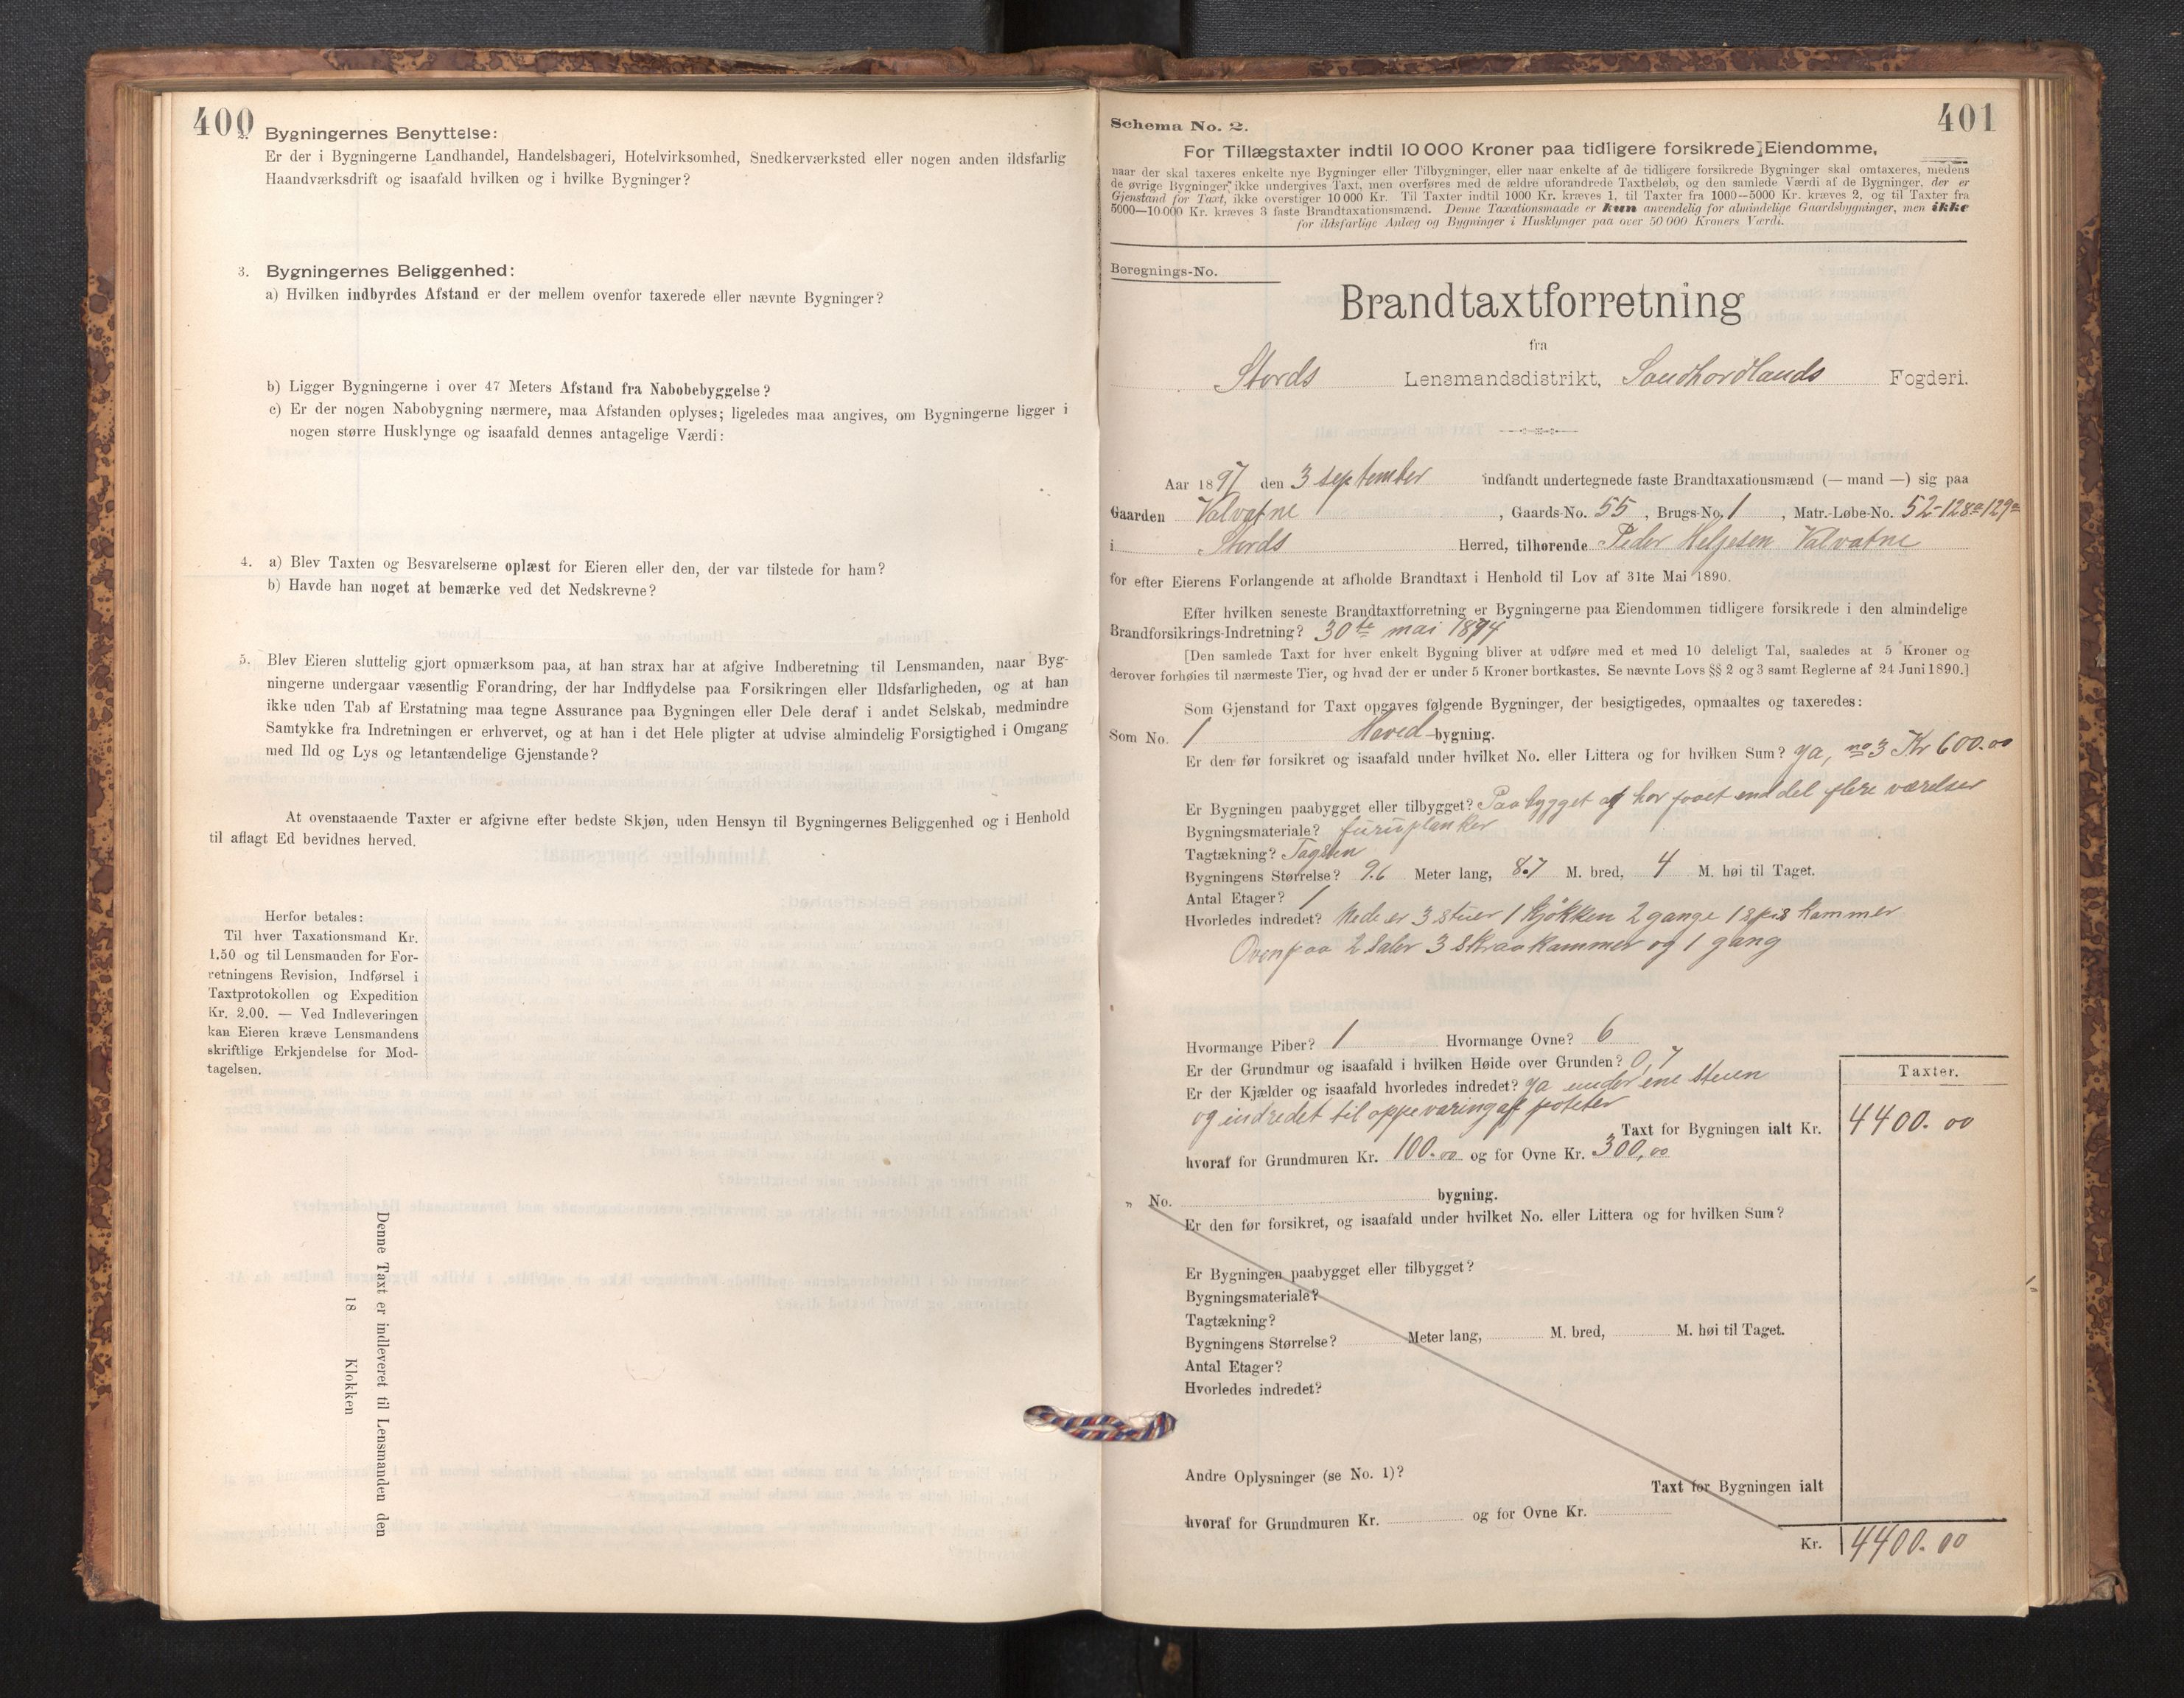 400
2. Bygningernes Benyttelse:
Er der i Bygningerne Landhandel, Handelsbageri, Hotelvirksomhed, Snedkerværksted eller nogen anden ildsfarlig
Haandværksdrift og isaafald hvilken og i hvilke Bygninger?
3. Bygningernes Beliggenhed:
a) Hvilken indbyrdes Afstand er der mellem ovenfor taxerede eller nævnte Bygninger?
b) Ligger Bygningerne i over 47 Meters Afstand fra Nabobebyggelse?
c) Er der nogen Nabobygning nærmere, maa Afstanden oplyses; ligeledes maa angives, om Bygningerne ligger i
nogen større Husklynge og isaafald dennes antagelige Værdi:
4. a) Blev Taxten og Besvarelserne oplæst for Eieren eller den, der var tilstede for ham?
b) Havde han noget at bemærke ved det Nedskrevne?
5. Blev Eieren sluttelig gjort opmærksom paa, at han strax har at afgive Indberetning til Lensmanden, naar Byg-
ningerne undergaar væsentlig Forandring, der har Indflydelse paa Forsikringen eller Ildsfarligheden, og at han
ikke uden Tab af Erstatning maa tegne Assurance paa Bygningen eller Dele deraf i andet Selskab, medmindre
Samtykke fra Indretningen er erhvervet, og at han i det Hele pligter at udvise almindelig Forsigtighed i Omgang
med Ild og Lys og letantændelige Gjenstande?
At ovenstaaende Taxter er afgivne efter bedste Skjøn, uden Hensyn til Bygningernes Beliggenhed og i Henhold
til aflagt Ed bevidnes herved.
Herfor betales:
Til hver Taxationsmand Kr.
1.50 og til Lensmanden for For-
retningens Revision, Indførsel i
Taxtprotokollen og Expedition
Kr. 2.00. — Ved Indleveringen
kan Eieren kræve Lensmandens
skriftlige Erkjendelse for Mod-
tagelsen.
Denne Taxt er indleveret til Lensmanden den
18 Klokken
401
Schema No. 2.
For Tillægstaxter indtil 10 000 Kroner paa tidligere forsikrede Eiendomme,
naar der skal taxeres enkelte nye Bygninger eller Tilbygninger, eller naar enkelte af de tidligere forsikrede Bygninger skal omtaxeres, medens
de øvrige Bygninger ikke undergives Taxt, men overføres med de ældre uforandrede Taxtbeløb, og den samlede Værdi af de Bygninger, der er
Gjenstand for Taxt, ikke overstiger 10 000 Kr. Til Taxter indtil 1000 Kr. kræves 1, til Taxter fra 1000—5000 Kr. kræves 2, og til Taxter fra
5000—10 000 Kr. kræves 3 faste Brandtaxationsmænd. Denne Taxationsmaade er kun anvendelig for almindelige Gaardsbygninger, men ikke
for ildsfarlige Anlæg og Bygninger i Husklynger paa over 50 000 Kroners Værdi.
Beregnings-No.
Brandtaxtforretning
fra
Stords Lensmandsdistrikt, Søndhordlands Fogderi.
Aar 1897 den 3 september indfandt undertegnede faste Brandtaxationsmænd (— mand —) sig paa
Gaarden Valvatne, Gaards-No. 55, Brugs-No. 1, Matr.-Løbe-No. 52-128a-129a
i Stords Herred, tilhørende Peder Helgesen Valvatne
for efter Eierens Forlangende at afholde Brandtaxt i Henhold til Lov af 31te Mai 1890.
Efter hvilken seneste Brandtaxtforretning er Bygningerne paa Eiendommen tidligere forsikrede i den almindelige
Brandforsikrings-Indretning? 30te mai 1894
[Den samlede Taxt for hver enkelt Bygning bliver at udføre med et med 10 deleligt Tal, saaledes at 5 Kroner og
derover forhøies til nærmeste Tier, og hvad der er under 5 Kroner bortkastes. Se nævnte Lovs §§ 2 og 3 samt Reglerne af 24 Juni 1890.]
Som Gjenstand for Taxt opgaves følgende Bygninger, der besigtigedes, opmaaltes og taxeredes:
Som No. 1 Hoved-bygning.
Er den før forsikret og isaafald under hvilket No. eller Littera og for hvilken Sum? Ja, no 3 Kr 600.00
Er Bygningen paabygget eller tilbygget? Paabygget og har faaet end del flere værelser
Bygningsmateriale? furuplanker
Tagtækning? Tagsten
Bygningens Størrelse? 9.6 Meter lang, 8.7 M. bred, 4 M. høi til Taget.
Antal Etager? 1
Hvorledes indredet? Nede er 3 stuer 1 kjøkken 2 gange 1 spis kammer
Ovenpaa 2 saler 3 skraakammer og 1 gang
Hvormange Piber? 1 Hvormange Ovne? 6
Er der Grundmur og isaafald i hvilken Høide over Grunden? 0,7
Er der Kjælder og isaafald hvorledes indredet? Ja under ene stuen
og indredet til oppevaring af poteter
Taxter.
Taxt for Bygningen ialt Kr. 4400.00
hvoraf for Grundmuren Kr. 100.00 og for Ovne Kr. 300,00
„ No. bygning.
Er den før forsikret, og isaafald under hvilket No. eller Littera og for hvilken Sum?
Er Bygningen paabygget eller tilbygget?
Bygningsmateriale?
Tagtækning?
Bygningens Størrelse? Meter lang, M. bred, M. høi til Taget.
Antal Etager?
Hvorledes indredet?
Andre Oplysninger (se No. 1)?
Taxt for Bygningen ialt
hvoraf for Grundmuren Kr. og for Ovne Kr.
Kr. 4400.00